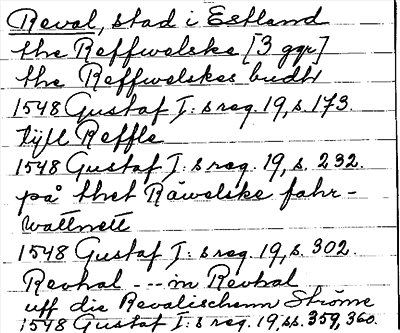 Reval, stad i Estland
the Reffwelske [3 ggr]
the Reffwelskes budh
1548 Gustaf I:s reg. 19, s. 173.
tijll Reffle
1548 Gustaf I:s reg. 19, s. 232.
på thet Räwelske fahr-
wattnett
1548 Gustaf I:s reg. 19, s. 302.
Revhal --- in Revhal
uff die Revalischenn Ströme
1548 Gustaf I:s reg. 19, ss. 359, 360.